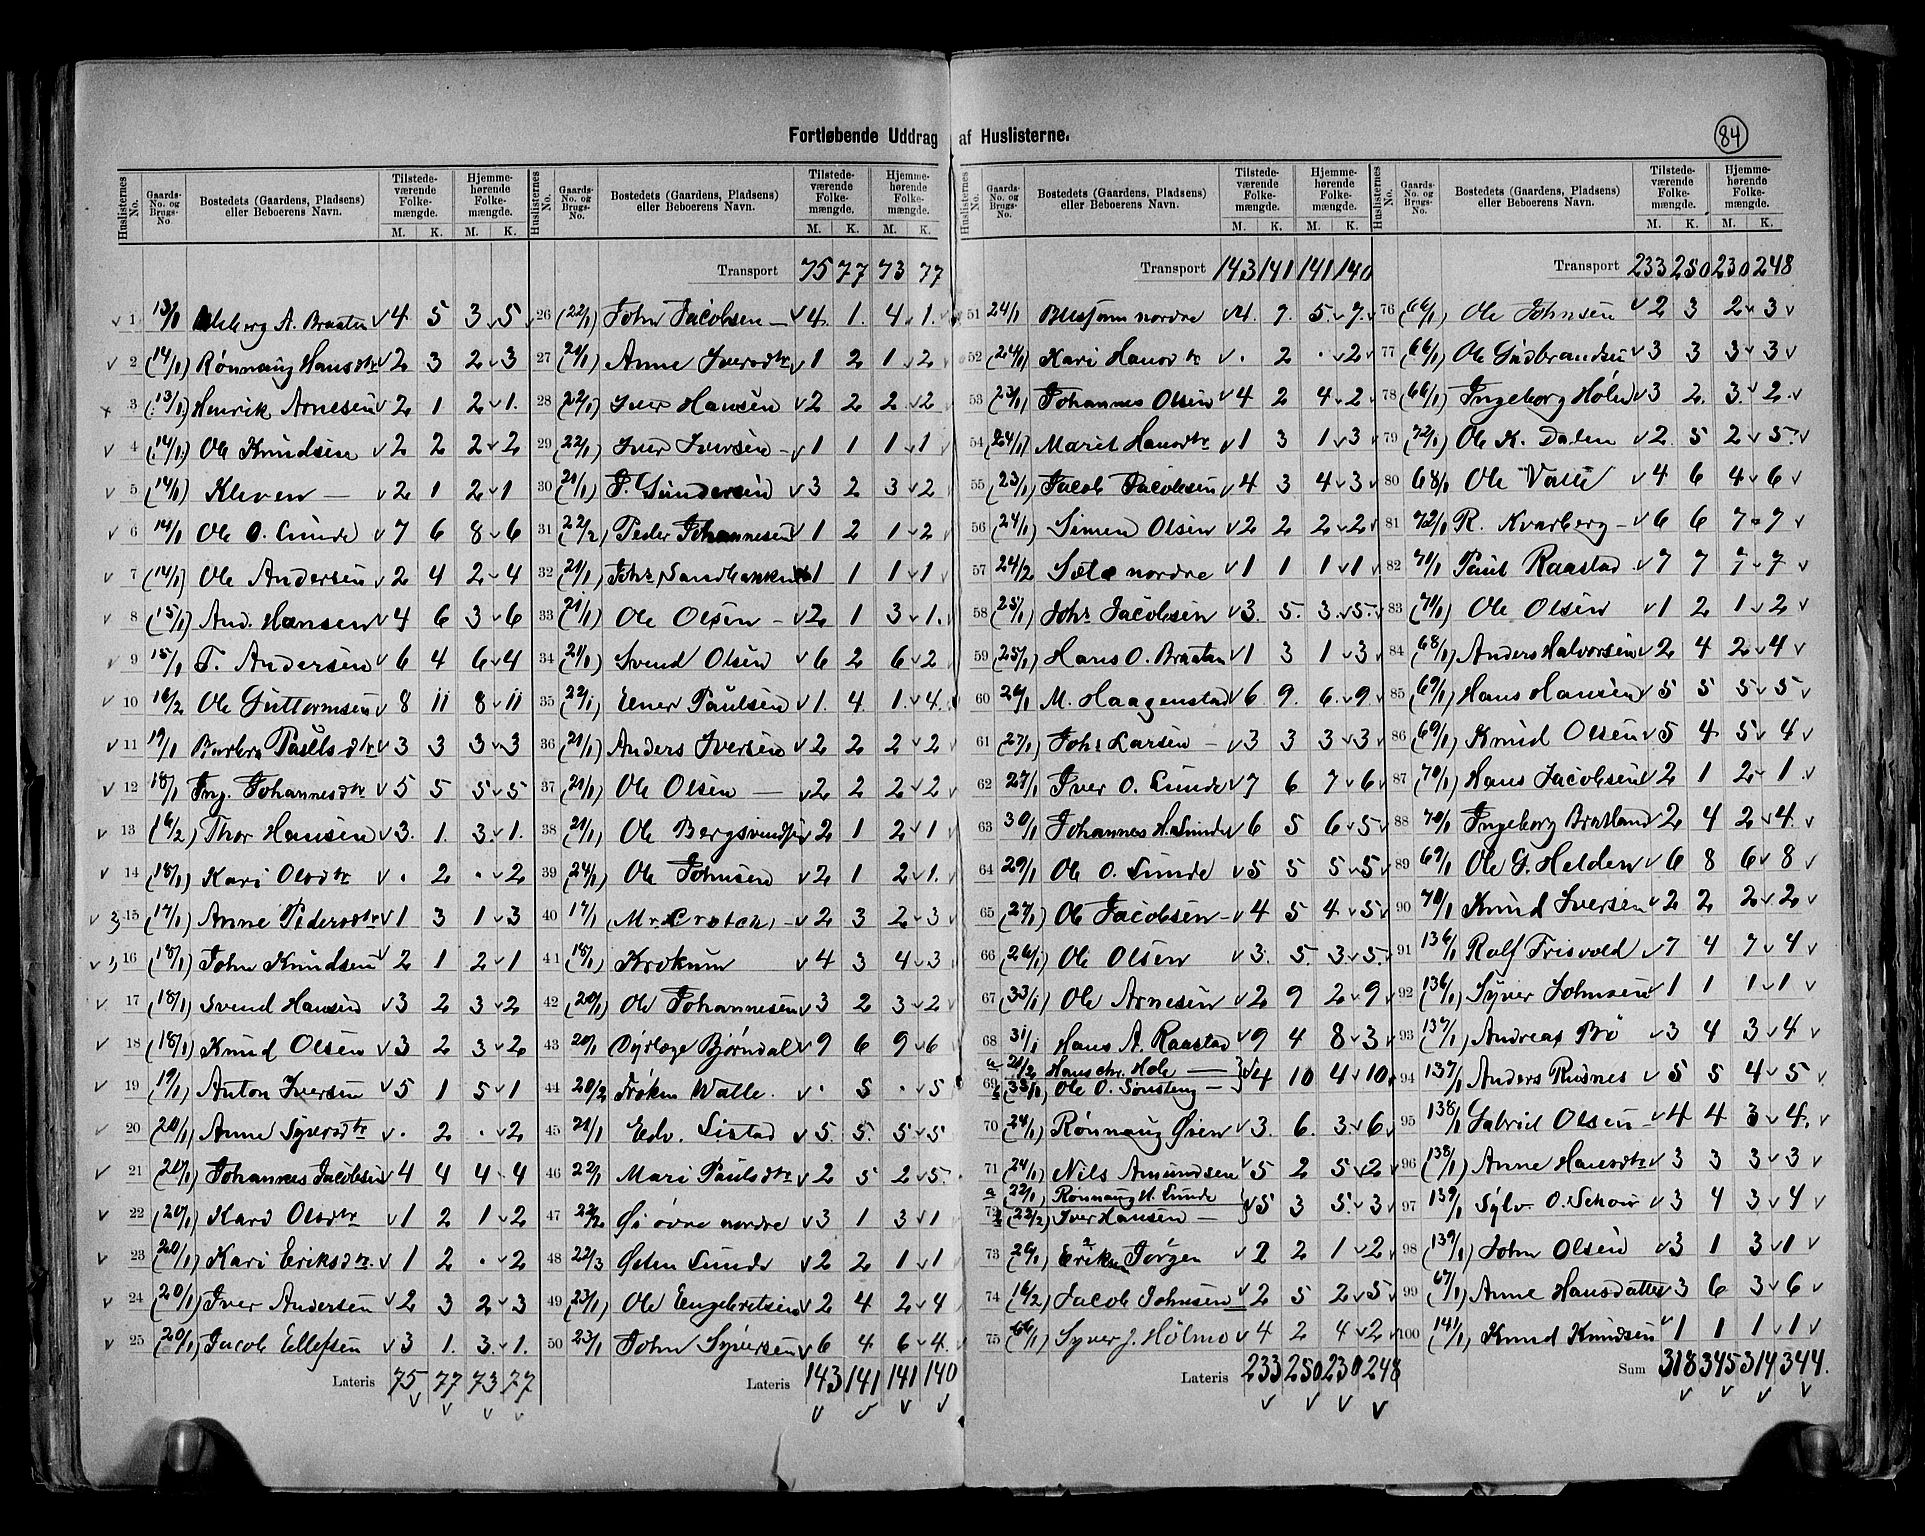 Fortløbende Uddrag af Huslisterne.
84
Huslisternes No. Gaards-No. og Brugs-No Bostedets (Gaardens, Pladsens) eller Beboerens Navn. Tilstedeværende Folkemængde. M. K. Hjemmehørende Folkemængde. M. K.
1 13/1 A. Braaten 4 5 3 5
2 (14/1) Rønnaug Hansdtr 2 3 2 3
3 (13/1) Henrik Arnesen 2 1 2 1.
4 (14/1) Ole Knudsen 2 2 2 2
5 (14/1) Kleven — 2 1 2 1
6 14/1 Ole O. Lunde 7 6 8 6
7 (14/1) Ole Andersen 2 4 2 4
8 (15/1) And. Hansen 4 6 3 6
9 15/1 T. Andersen 6 4 6 4
10 16/2 Ole Guttormsen 8 11 8 11
11 19/1 Barbra Paulsdtr 3 3 3 3
12 18/1 Ing. Johannesdtr 5 5 5 5
13 (16/2) Thor Hansen 3. 1. 3. 1.
14 (18/1) Kari Olsdtr . 2 . 2
15 (17/1) Anne Pedersdtr 1 3 1 3
16 (18/1) John Knudsen 2 1 2 1
17 (18/1) Svend Hansen 3 2 3 2
18 (18/1) Knud Olsen 3 2 3 2
19 (19/1) Anton Iversen 5 1 5 1
20 (20/1) Anne Syversdtr . 2 . 2
21 (20/1) Johannes Jacobsen 4 4 4 4
22 (20/1) Kari Olsdtr 1 2 1 2
23 (20/1) Kari Eriksdtr. 1 2 . 2
24 (20/1) Iver Andersen 2 3 2 3
25 (20/1) Jacob Ellefsen 3 1. 3. 1.
Lateris 75 77 73 77
Huslisternes No. Gaards-No. og Brugs-No. Bostedets (Gaardens, Pladsens) eller Beboerens Navn. Tilstedeværende Folkemængde. M. K. Hjemmehørende Folkemængde. M. K.
Transport 75 77 73 77
26 (22/1) John Jacobsen — 4. 1. 4. 1.
27 (21/1) Anne Iversdtr. 1 2 1 2
28 (22/1) Iver Hansen 2 2 2 2
29 (22/1) Iver Iversen — 1 1 1 1
30 (21/1) G. Gundersen 3 2 3 2
31 (22/2) Peder Johannesen 1 2 1 2
32 (21/1) Johs. Sandbakken 1 1 1 1
33 (21/1) Ole Olsen — 2 1 3 1.
34 (21/1) Svend Olsen 6 2 6 2
35 (22/1) Ener Paulsen 1. 4. 1. 4.
36 (21/1) Anders Iversen 2 2 2 2
37 (21/1) Ole Olsen — 2 2 2 2
38 (21/1) Ole 2 1 2 1
39 (24/1) Ole Johnsen 2 1 2 1.
40 17/1 Mr. Crotch — 2 3 2 3
41 (18/1) Krokum 4 3 4 3
42 (20/1) Ole Johannesen 3 2 3 2
43 20/1 Dyrlæge Bjørndal 9 6 9 6
44 20/2 Frøken Walle. . 5 . 5
45 21/1 Edv. Listad 5. 5. 5 5
46 22/1 Mari Paulsdtr 2 5 2 5.
47 22/2 Øi øvre nordre 3 1 3 1
48 22/3 Østen Lunde 2 2 1 1
49 (23/1) Ole Engebretsen 2 4 2 4
50 23/1 John Syversen 6 4 6 4.
Lateris 143 141 141 140
Huslisternes No. Gaards-No. og Brugs-No. Bostedets (Gaardens, Pladsens) eller Beboerens Navn. Tilstedeværende Folkemængde. M. K. Hjemmehørende Folkemængde. M. K.
Transport 143 141 141 140
51 24/1 nordre 4. 7. 5. 7.
52 (24/1) Kari Hansdtr . 2 . 2
53 (23/1) Johannes Olsen 4 2 4 2
54 (24/1) Marit Hansdtr 1 3 1 3
55 (23/1) Jacob Jacobsen 4 3 4 3
56 (24/1) Simen Olsen 2 2 2 2
57 24/2 Sætø nordre 1 1 1 1
58 (25/1) Johs. Jacobsen 3. 5. 3. 5.
59 (25/1) Hans O. Braaten 1 3 1 3
60 26/1 M. Haagenstad 6 9. 6. 9
61 (27/1) Johs Larsen — 3 3 3 3
62 27/1 Iver O. Lunde 7 6 7 6
63 30/1 Johannes H. Lunde 6 5 6 5
64 29/1 Ole O. Lunde 5 5 5 5
65 (27/1) Ole Jacobsen — 4 5 4 5
66 (26/1) Ole Olsen 3. 5. 3 5.
67 (33/1) Ole Arnesen 2 9 2 9
68 31/1 Hans A. Raastad 9 4 8 3
a 21/2 Hans chr. Hole —
69 b (33/1) Ole O. Sønsteng — 4 10 4 10
70 (24/1) Rønnaug Øien 3. 6. 3. 6
71 (24/1) Nils Amundsen 5 2 5 2
a (22/1) Rønnaug H. Lunde
72 b (22/2) Iver Hansen — 5 3 5. 3
73 (26/1) Eriksen Jørgen 2 2 1 2
74 (16/2) Jacob Johnsen 2 5 2 5
75 (66/1) Syver J. Holmo 4 2 4 2
Lateris 233 250 230 248
Huslisternes No. Gaards-No. og Brugs-No. Bostedets (Gaardens, Pladsens) eller Beboerens Navn. Tilstedeværende Folkemængde. M. K. Hjemmehørende Folkemængde. M. K.
Transport 233 250 230 248
76 (66/1) Ole Johnsen 2 3 2 3
77 (66/1) Ole Gudbrandsen 3 3 3 3
78 (66/1) Ingeborg Holen 3 2. 3. 2.
79 (72/1) Ole K. Dalen 2. 5 2 5.
80 68/1 Ole Valle 4 6 4 6
81 72/1 R. Kvarberg — 6 6 7 7
82 71/1 Paul Raastad 7 7 7 7
83 (71/1) Ole Olsen 1 2 1 2
84 (68/1) Anders Halvorsen 2 4 2 4
85 (69/1) Hans Hansen 5 5 5 5
86 (69/1) Knud Olsen 5 4 5 4
87 (70/1) Hans Jacobsen 2 1 2 1.
88 70/1 Ingeborg Bratland 2 4 2 4.
89 69/1 Ole G. Helden 6 8 6 8
90 70/1 Knud Iversen 2 2 2 2
91 136/1 Rolf Frisvold 7 4 7 4
92 (136/1) Syver Johnsen 1 1 1 1
93 (137/1) Andreas Bø 3 4 3 4
94 137/1 Anders Rusnes 5 5 4 5
95 138/1 Gabriel Olsen 4 4 3 4.
96 (138/1) Anne Hansdtr 3 3 3 3
97 139/1 Sylv. O. Schou 3 4 3 4
98 (139/1) John Olsen 3 1 3 1
99 (67/1) Anne Hansdatter 3 6 3 6
100 (141/1) Knud Knudsen 1 1 1 1
Sum 318 345 314 344.